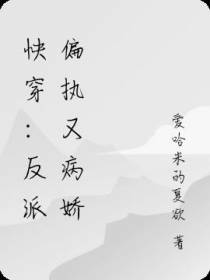 快穿：反派
偏执又病娇
爱哈米的夏欲 著